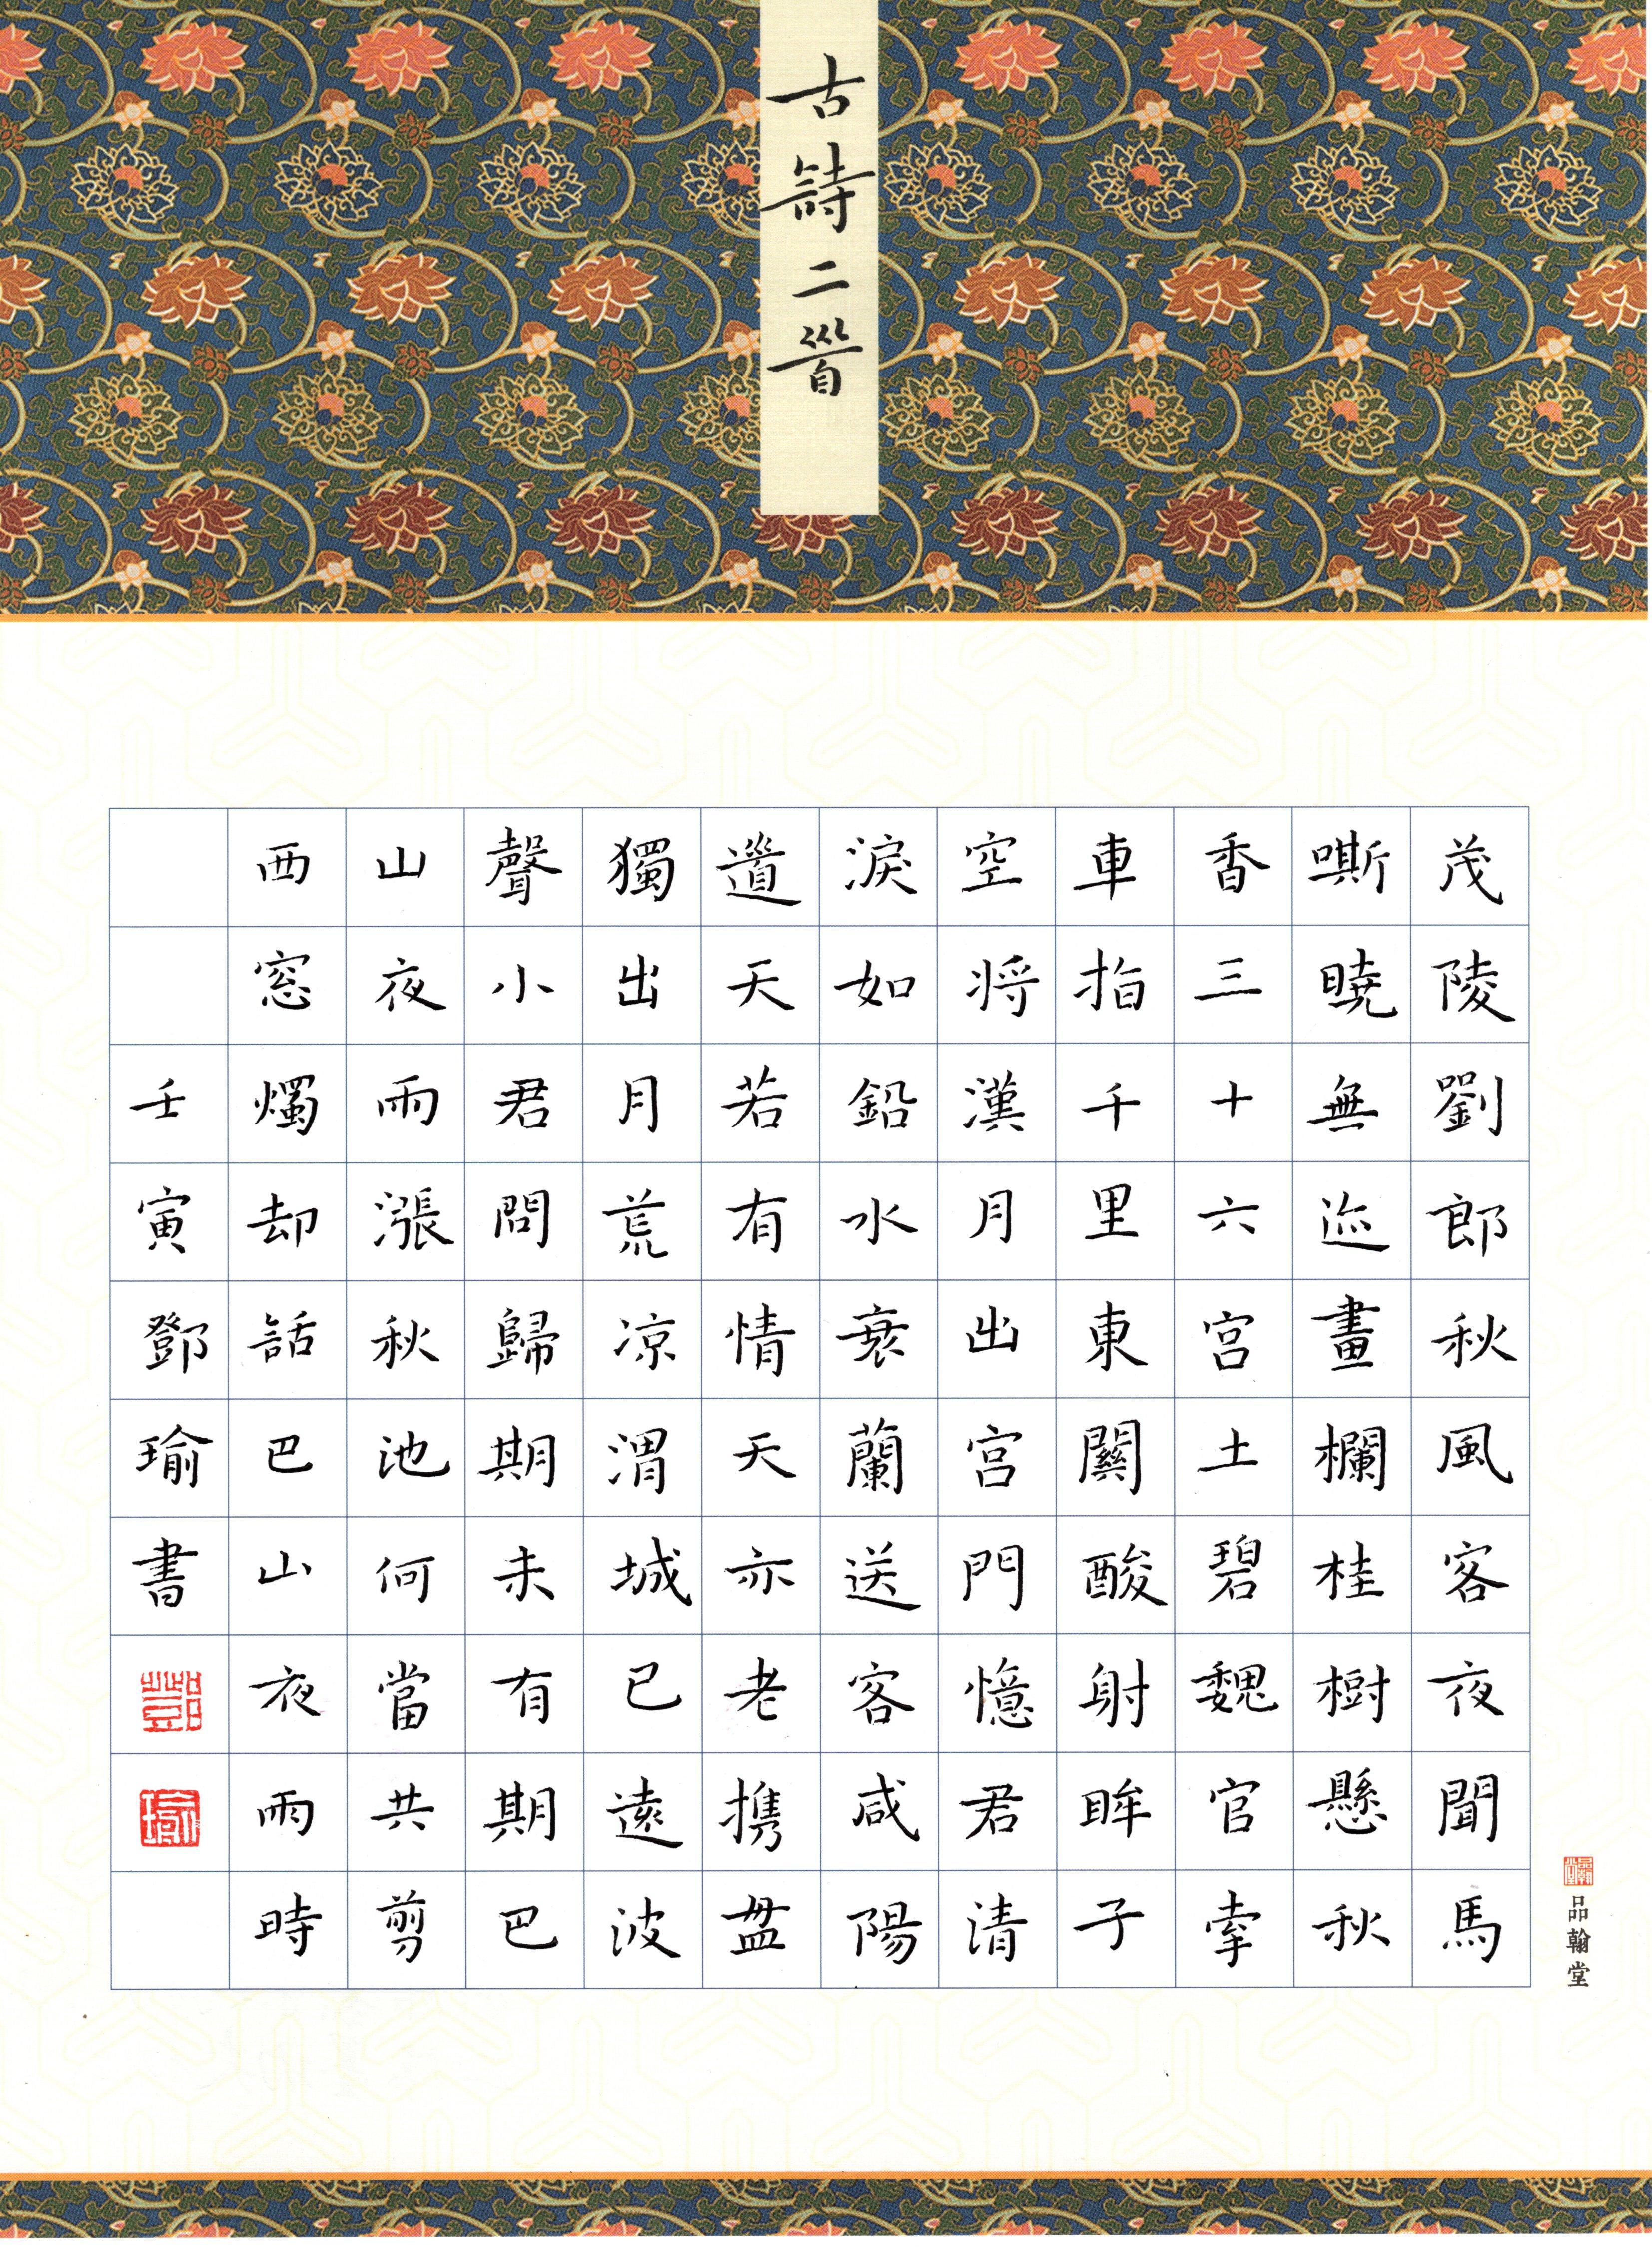 古詩二首
茂陵劉郎秋風客夜聞馬
嘶曉無迹畫欄桂樹懸秋
香三十六宮土碧魏官牽
車指千里東關酸射眸子
空將漢月出宮門憶君清
淚如鉛水衰蘭送客咸陽
道天若有情天亦老携盤
獨出月荒凉渭城已遠波
聲小君問歸期未有期巴
山夜雨漲秋池何當共剪
西窓燭却話巴山夜雨時
壬寅鄧瑜書
鄧
瑜
品翰堂
品翰堂